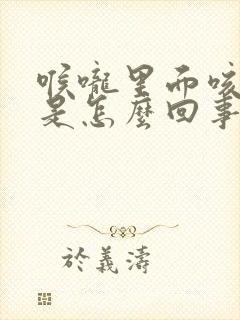 喉嚨里而咳
是怎麼回事
於義濤